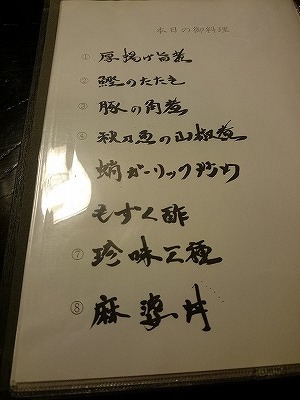 本日の御料理
① 厚揚げ旨煮
② 鰹のたたき
③ 豚の角煮
④ 秋刀魚の山椒煮
蛸ガーリック
もずく酢
⑦ 珍味三種
⑧ 麻婆丼